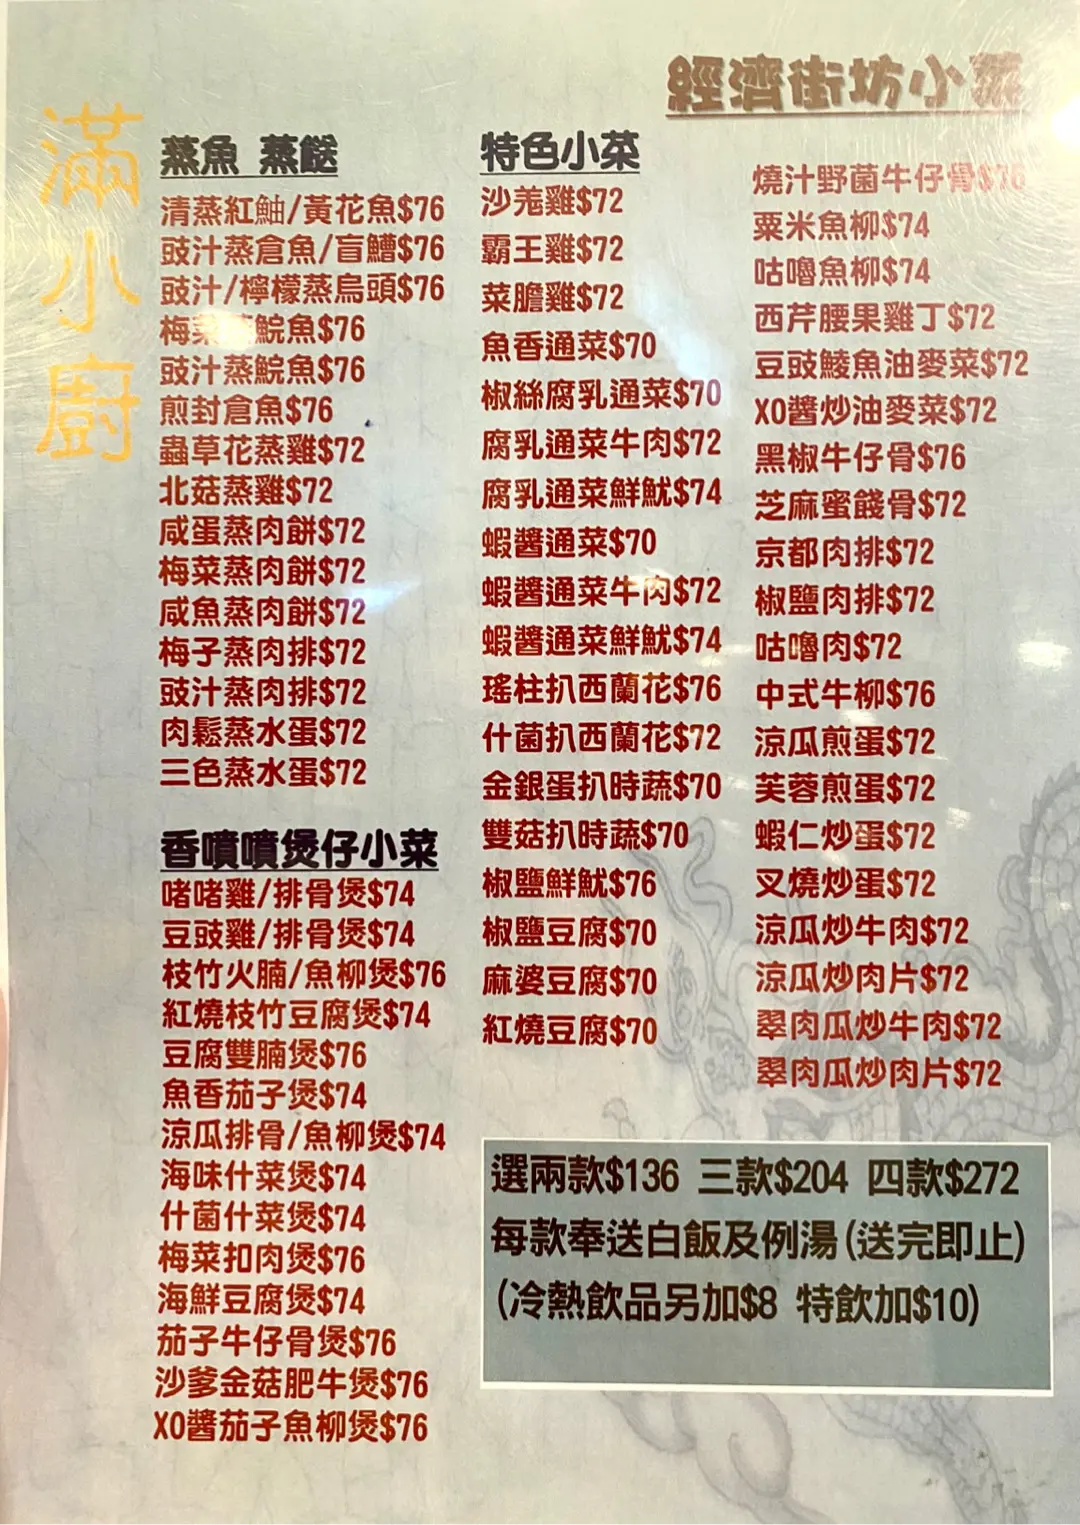 經濟街坊小菜
滿小廚
蒸魚 蒸餸
清蒸紅鮋/黃花魚$76
豉汁蒸倉魚/盲鰽$76
豉汁/檸檬蒸烏頭$76
梅菜蒸鯇魚$76
豉汁蒸鯇魚$76
煎封倉魚$76
蟲草花蒸雞$72
北菇蒸雞$72
咸蛋蒸肉餅$72
梅菜蒸肉餅$72
咸魚蒸肉餅$72
梅子蒸肉排$72
豉汁蒸肉排$72
肉鬆蒸水蛋$72
三色蒸水蛋$72
香噴噴煲仔小菜
啫啫雞/排骨煲$74
豆豉雞/排骨煲$74
枝竹火腩/魚柳煲$76
紅燒枝竹豆腐煲$74
豆腐雙腩煲$76
魚香茄子煲$74
涼瓜排骨/魚柳煲$74
海味什菜煲$74
什菌什菜煲$74
梅菜扣肉煲$76
海鮮豆腐煲$74
茄子牛仔骨煲$76
沙爹金菇肥牛煲$76
XO醬茄子魚柳煲$76
特色小菜
沙羗雞$72
霸王雞$72
菜膽雞$72
魚香通菜$70
椒絲腐乳通菜$70
腐乳通菜牛肉$72
腐乳通菜鮮魷$74
蝦醬通菜$70
蝦醬通菜牛肉$72
蝦醬通菜鮮魷$74
瑤柱扒西蘭花$76
什菌扒西蘭花$72
金銀蛋扒時蔬$70
雙菇扒時蔬$70
椒鹽鮮魷$76
椒鹽豆腐$70
麻婆豆腐$70
紅燒豆腐$70
燒汁野菌牛仔骨$76
粟米魚柳$74
咕嚕魚柳$74
西芹腰果雞丁$72
豆豉鯪魚油麥菜$72
XO醬炒油麥菜$72
黑椒牛仔骨$76
芝麻蜜餞骨$72
京都肉排$72
椒鹽肉排$72
咕嚕肉$72
中式牛柳$76
涼瓜煎蛋$72
芙蓉煎蛋$72
蝦仁炒蛋$72
叉燒炒蛋$72
涼瓜炒牛肉$72
涼瓜炒肉片$72
翠肉瓜炒牛肉$72
翠肉瓜炒肉片$72
選兩款$136 三款$204 四款$272
每款奉送白飯及例湯(送完即止)
(冷熱飲品另加$8 特飲加$10)